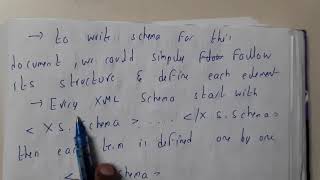 → To write schema for this
document, we could simply follow
its structure & define each element
→ Every XML Schema start with
< XS. Schema > ..... </ X S. Schema >
then each is defined one by one